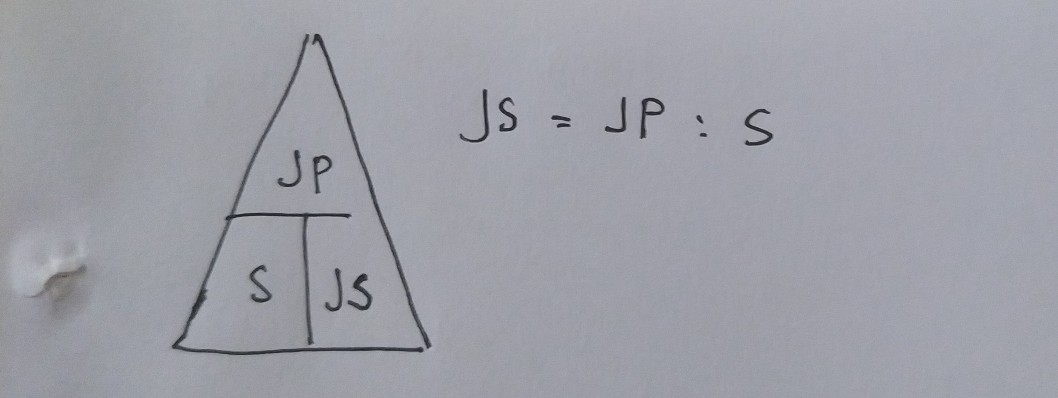 JS = JP : S
JP
S JS